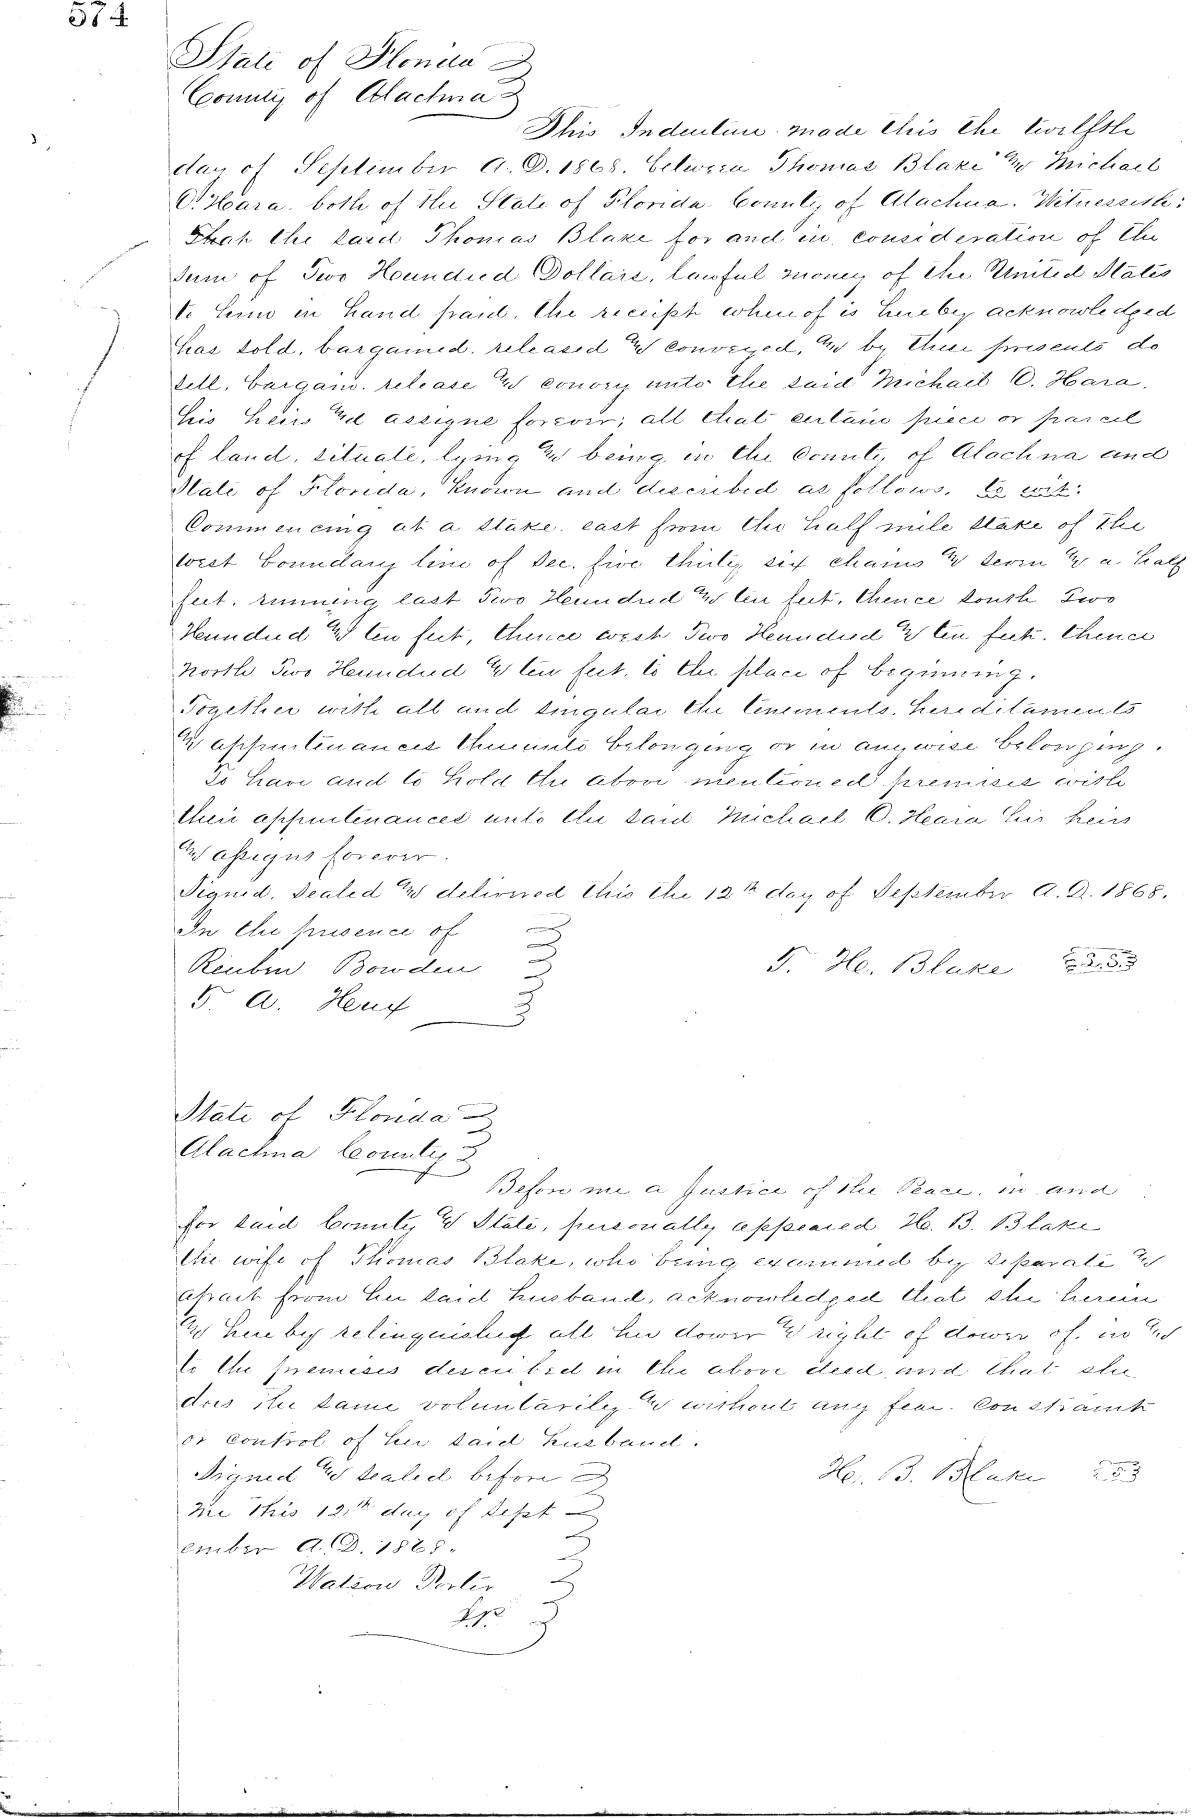 574
State of Florida
County of Alachua
This Indenture made this the twelfth
day of September A.D. 1868. between Thomas Blake and Michael
O. Hara. both of the State of Florida County of Alachua. Witnesseth:
That the said Thomas Blake for and in consideration of the
sum of Two Hundred Dollars, lawful money of the United States
to him in hand paid, the receipt whereof is hereby acknowledged
has sold, bargained, released and conveyed, and by these presents do
sell, bargain, release and convey unto the said Michael O. Hara,
his heirs and assigns forever; all that certain piece or parcel
of land, situate, lying and being in the County of Alachua and
State of Florida, known and described as follows, to wit:
Commencing at a stake east from the half mile stake of the
west boundary line of Sec. five thirty six chains and seven & a half
feet. running east Two Hundred and ten feet, thence south Two
Hundred and ten feet, thence west Two Hundred and ten feet. thence
north Two Hundred and ten feet, to the place of beginning.
Together with all and singular the tenements, hereditaments
and appurtenances thereunto belonging or in anywise belonging.
To have and to hold the above mentioned premises with
their appurtenances unto the said Michael O. Hara his heirs
and assigns forever.
Signed, sealed and delivered this the 12th day of September A.D. 1868.
In the presence of
Reuben Bowden T. H. Blake
T. A.
State of Florida
Alachua County
Before me a Justice of the Peace, in and
for said County and State, personally appeared H. B. Blake
the wife of Thomas Blake, who being examined by separate and
apart from her said husband, acknowledged that she herein
and hereby relinquished all her dower and right of dower of, in and
to the premises described in the above deed and that she
does the same voluntarily and without any fear, constraint
or control of her said husband.
Signed and sealed before H. B. Blake
me this 12th day of Sept
ember A.D. 1868.
Watson Porter
J.P.